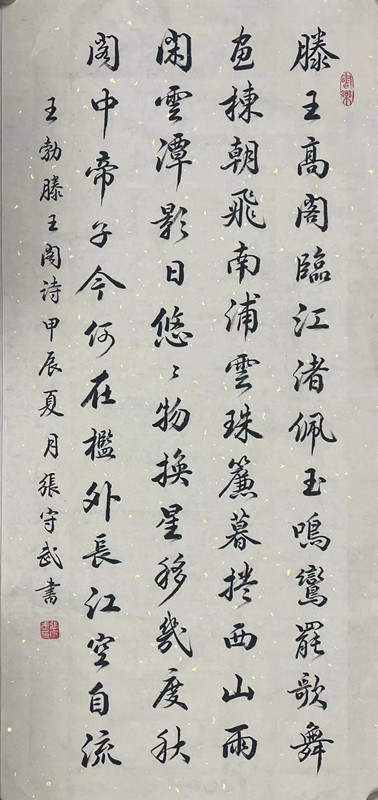 滕王高阁臨江渚佩玉鳴鸞罷歌舞
画棟朝飛南浦雲珠簾暮捲西山雨
闲雲潭影日悠〻物換星移幾度秋
阁中帝子今何在檻外長江空自流
王勃滕王阁诗甲辰夏月張守武書